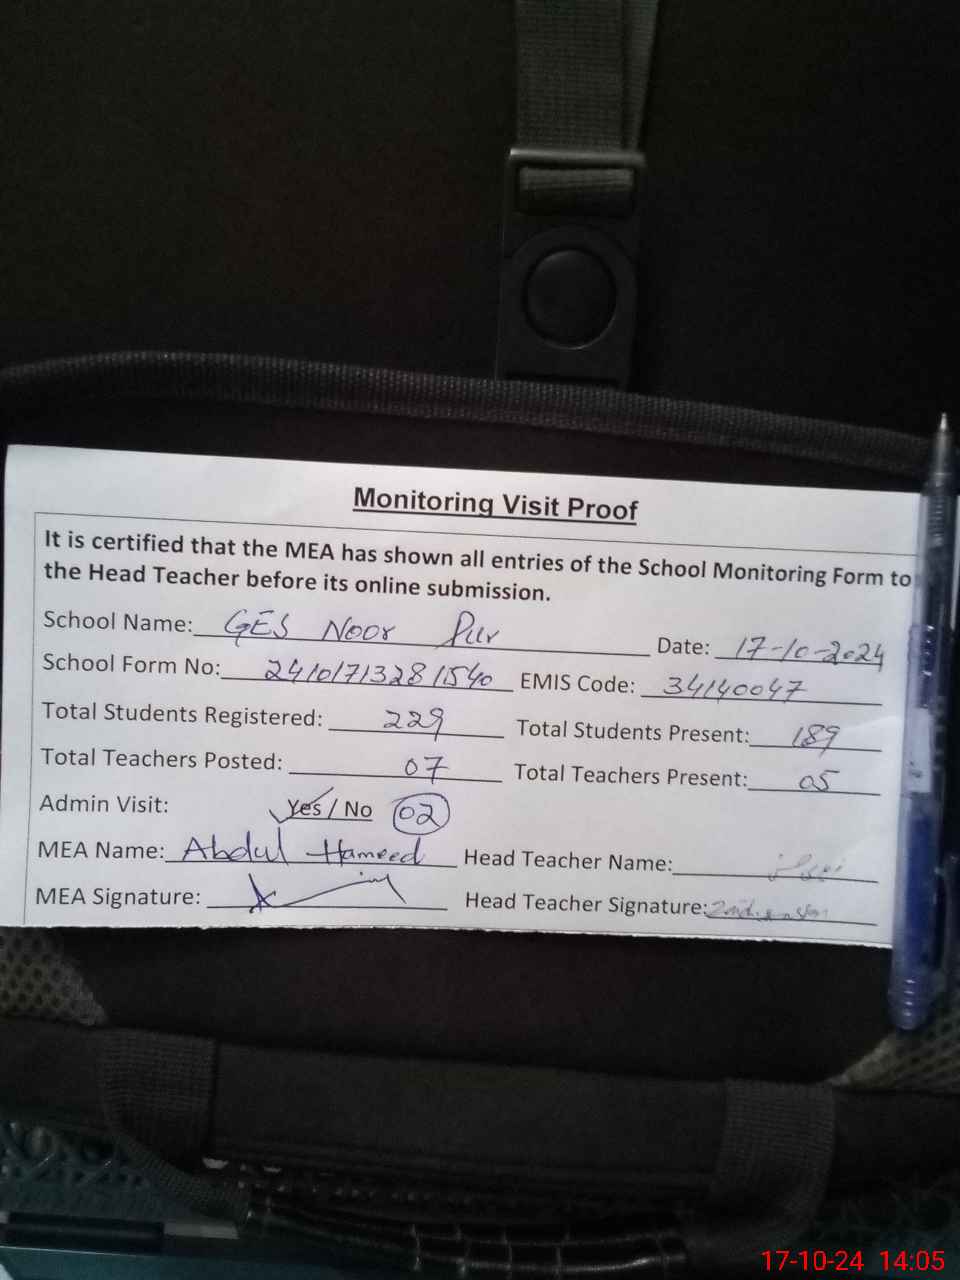 Monitoring Visit Proof
It is certified that the MEA has shown all entries of the School Monitoring Form to
the Head Teacher before its online submission.
School Name: GES Noor Pur Date: 17-10-2024
School Form No: 24101713281540 EMIS Code: 34140047
Total Students Registered: 229 Total Students Present: 189
Total Teachers Posted: 07 Total Teachers Present: 05
Admin Visit: Yes / No 02
MEA Name: Abdul Hameed Head Teacher Name:
MEA Signature: Head Teacher Signature:
17-10-24 14:05